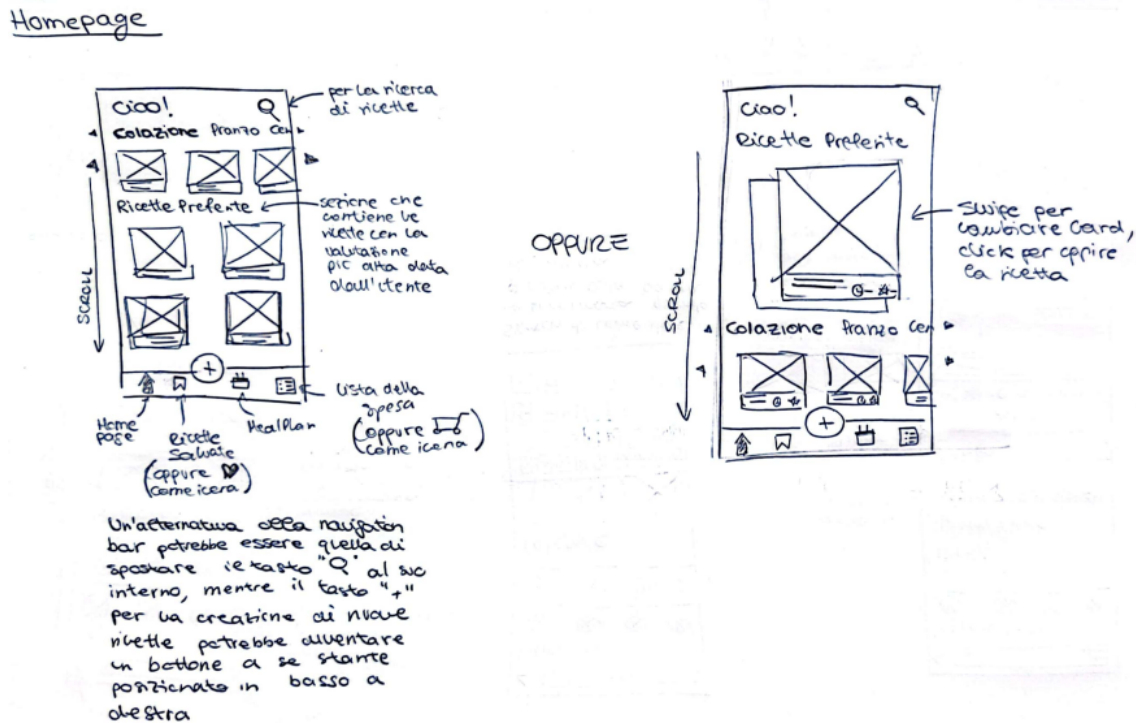 Homepage
Ciao!
per la ricerca
di ricette
Colazione Pranzo Cen
Ricette Preferite
sezione che
contiene le
ricette con la
valutazione
più alta data
dall'utente
SCROLL
+
Home
page
Ricette
Salvate
(oppure
come icona)
MealPlan
Lista della
spesa
(oppure
come icona)
Un'alternativa alla navigation
bar potrebbe essere quella di
spostare il tasto " " al suo
interno, mentre il tasto "+"
per la creazione di nuove
ricette potrebbe diventare
un bottone a se stante
posizionato in basso a
destra
OPPURE
Ciao!
Ricette Preferite
Swipe per
cambiare Card,
click per aprire
la ricetta
SCROLL
Colazione Pranzo Cen
+